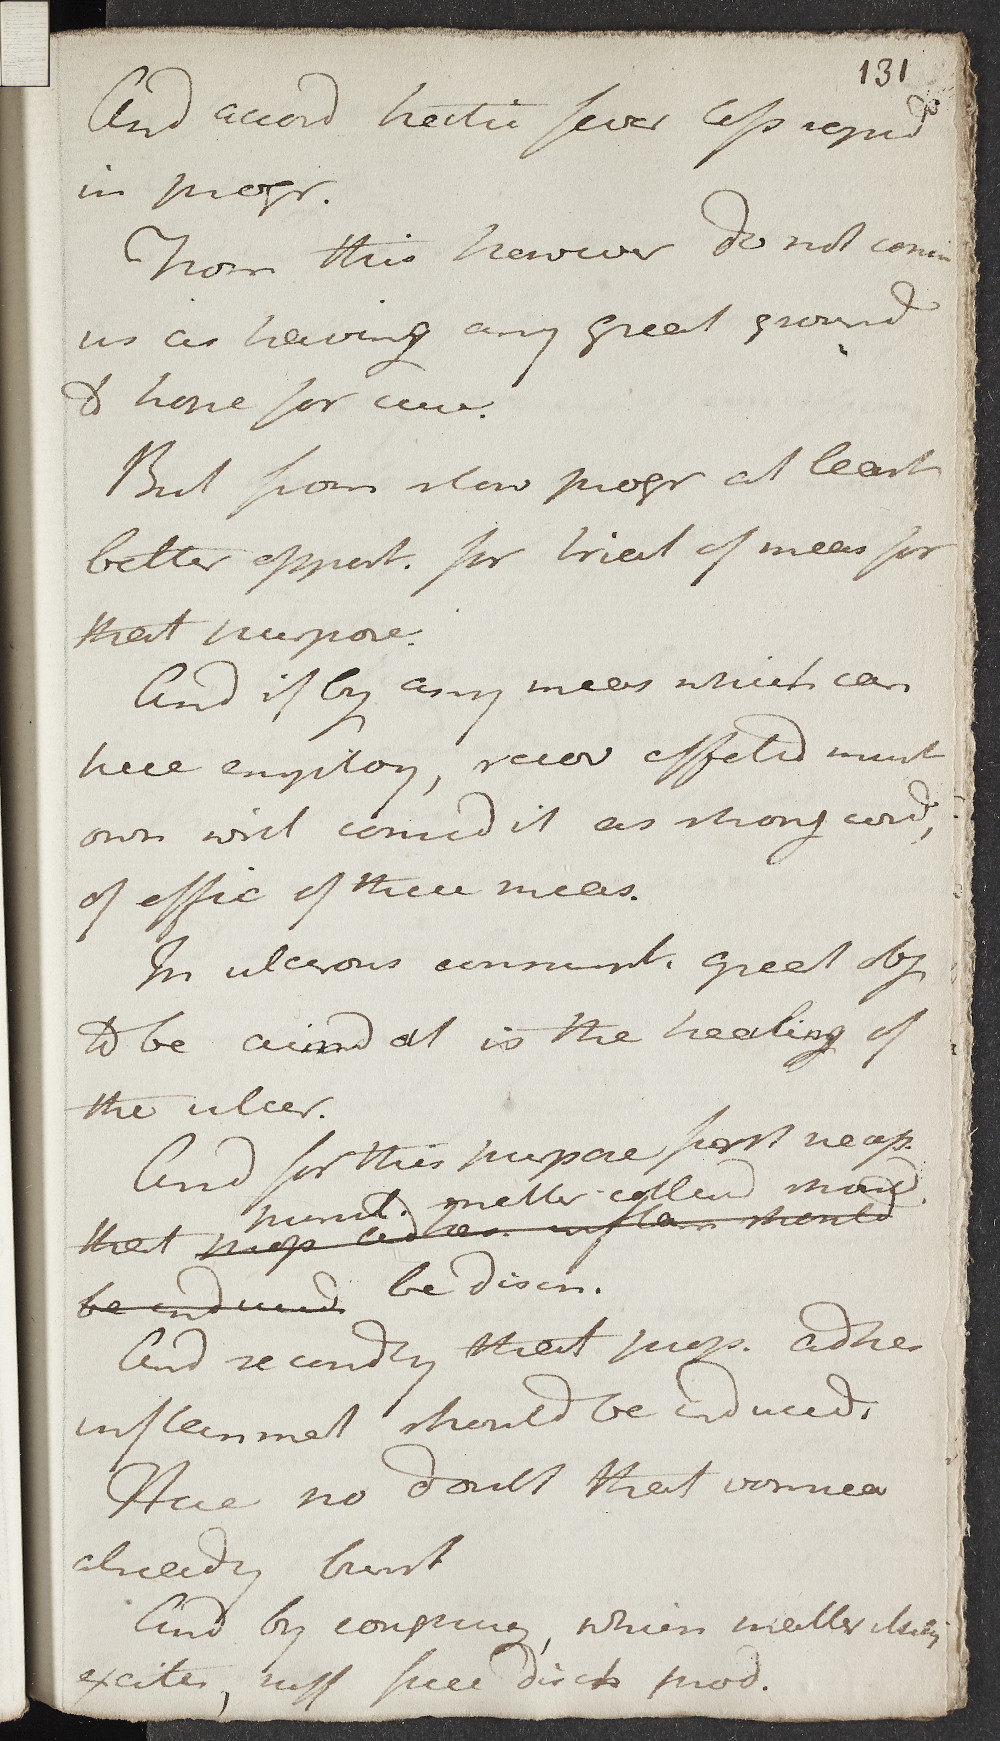 131
And accord hectic fever less rapid
in progr.
From this however do not consid
us as having any great ground
to hope for cure.
But from slow progr at least
better opport. for trial of meas for
that purpose.
And if by any meas which can
here employ, recov effected must
own will consid it as strong evid,
of effic of these meas.
In ulcerous consumpt. great obj
to be aimd at is the healing of
the ulcer.
And for this purpose first necess.
purul. matter collend should
that prop adhes. inflam should
be induced be disch.
And secondly that prop. adhes
inflammat should be induced.
Here no doubt that vomica
already burst
And by coughing, which matter itself
excites, suff free disch prod.